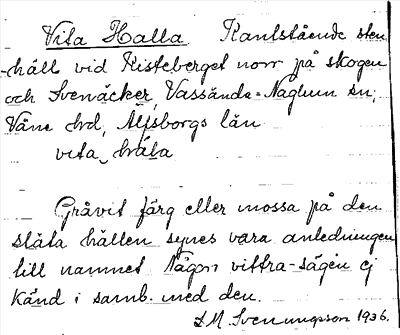 Vita Halla Kantstående sten
-häll vid Kisteberget norr på skogen
och Svenäcker, Vassända=Naglum sn,
Väne hrd, Älfsborgs län
vita håla
Gråvit färg eller mossa på den
släta hällen synes vara anledningen
till namnet Någon vittra-sägen ej
känd i samb. med den.
S.M. Svenungsson 1936.